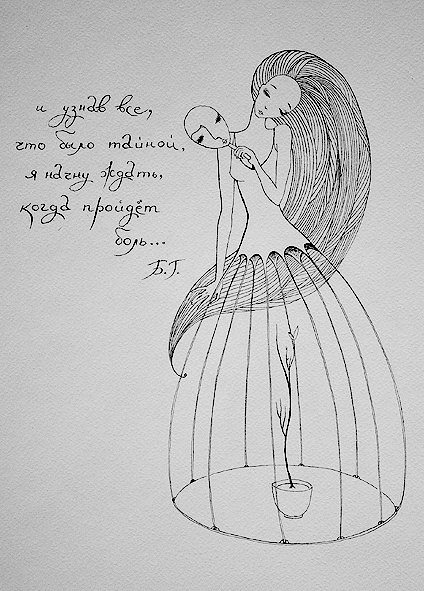 и узнав все,
что было тайной,
я начну ждать,
когда пройдёт
боль...
Б.Г.